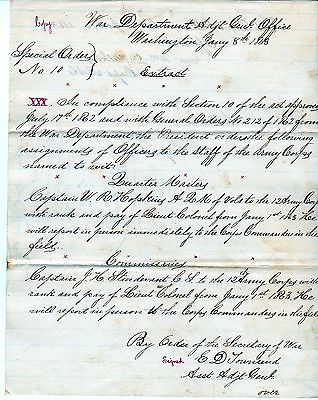 Copy War Department Adjt Genl Office
Washington Jany 8th 1863
Special Orders
No 10
Extract
x x x x
XXX. In compliance with Section 10 of the act approved
July 17th 1862 and with General Orders No 212 of 1862 from
the War Department, the President orders the following
assignments of Officers to the Staff of the Army Corps
named to wit:
Quarter Masters
Captain W. R. Hopkins A Q M of Vols to the 12 Army Corps
with rank and pay of Lieut Colonel from Jany 1st 1863. He
will report in person immediately to the Corps Commander in the
field.
x x x x
Commissaries
Captain J. H. Sturdevant C S to the 12th Army Corps with
rank and pay of Lieut Colonel from Jany 1st 1863. He
will report in person to the Corps Commanders in the field
By Order of the Secretary of War
Signed E. D Townsend
Asst Adjt Genl
over